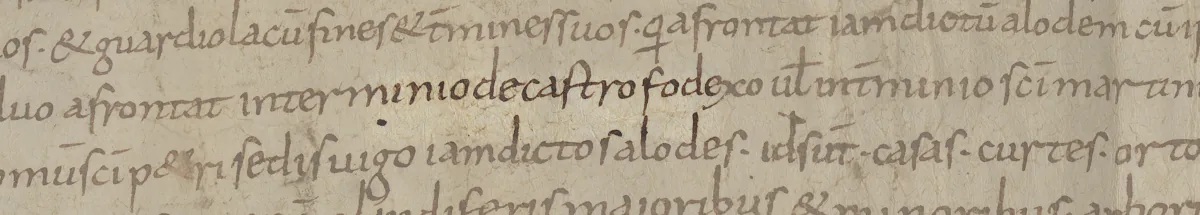 os. & guardiola cū fines & t̄mines suos. q̄ afrontat iamdictū alodem cū
uo afrontat in terminio de castro fodexo ul̄ in t̄minio sc̄i martin
mū sc̄i p&ri sedis uigo iamdictos alodes. id sūt. casas. curtes. orto
maioribus & minoribus